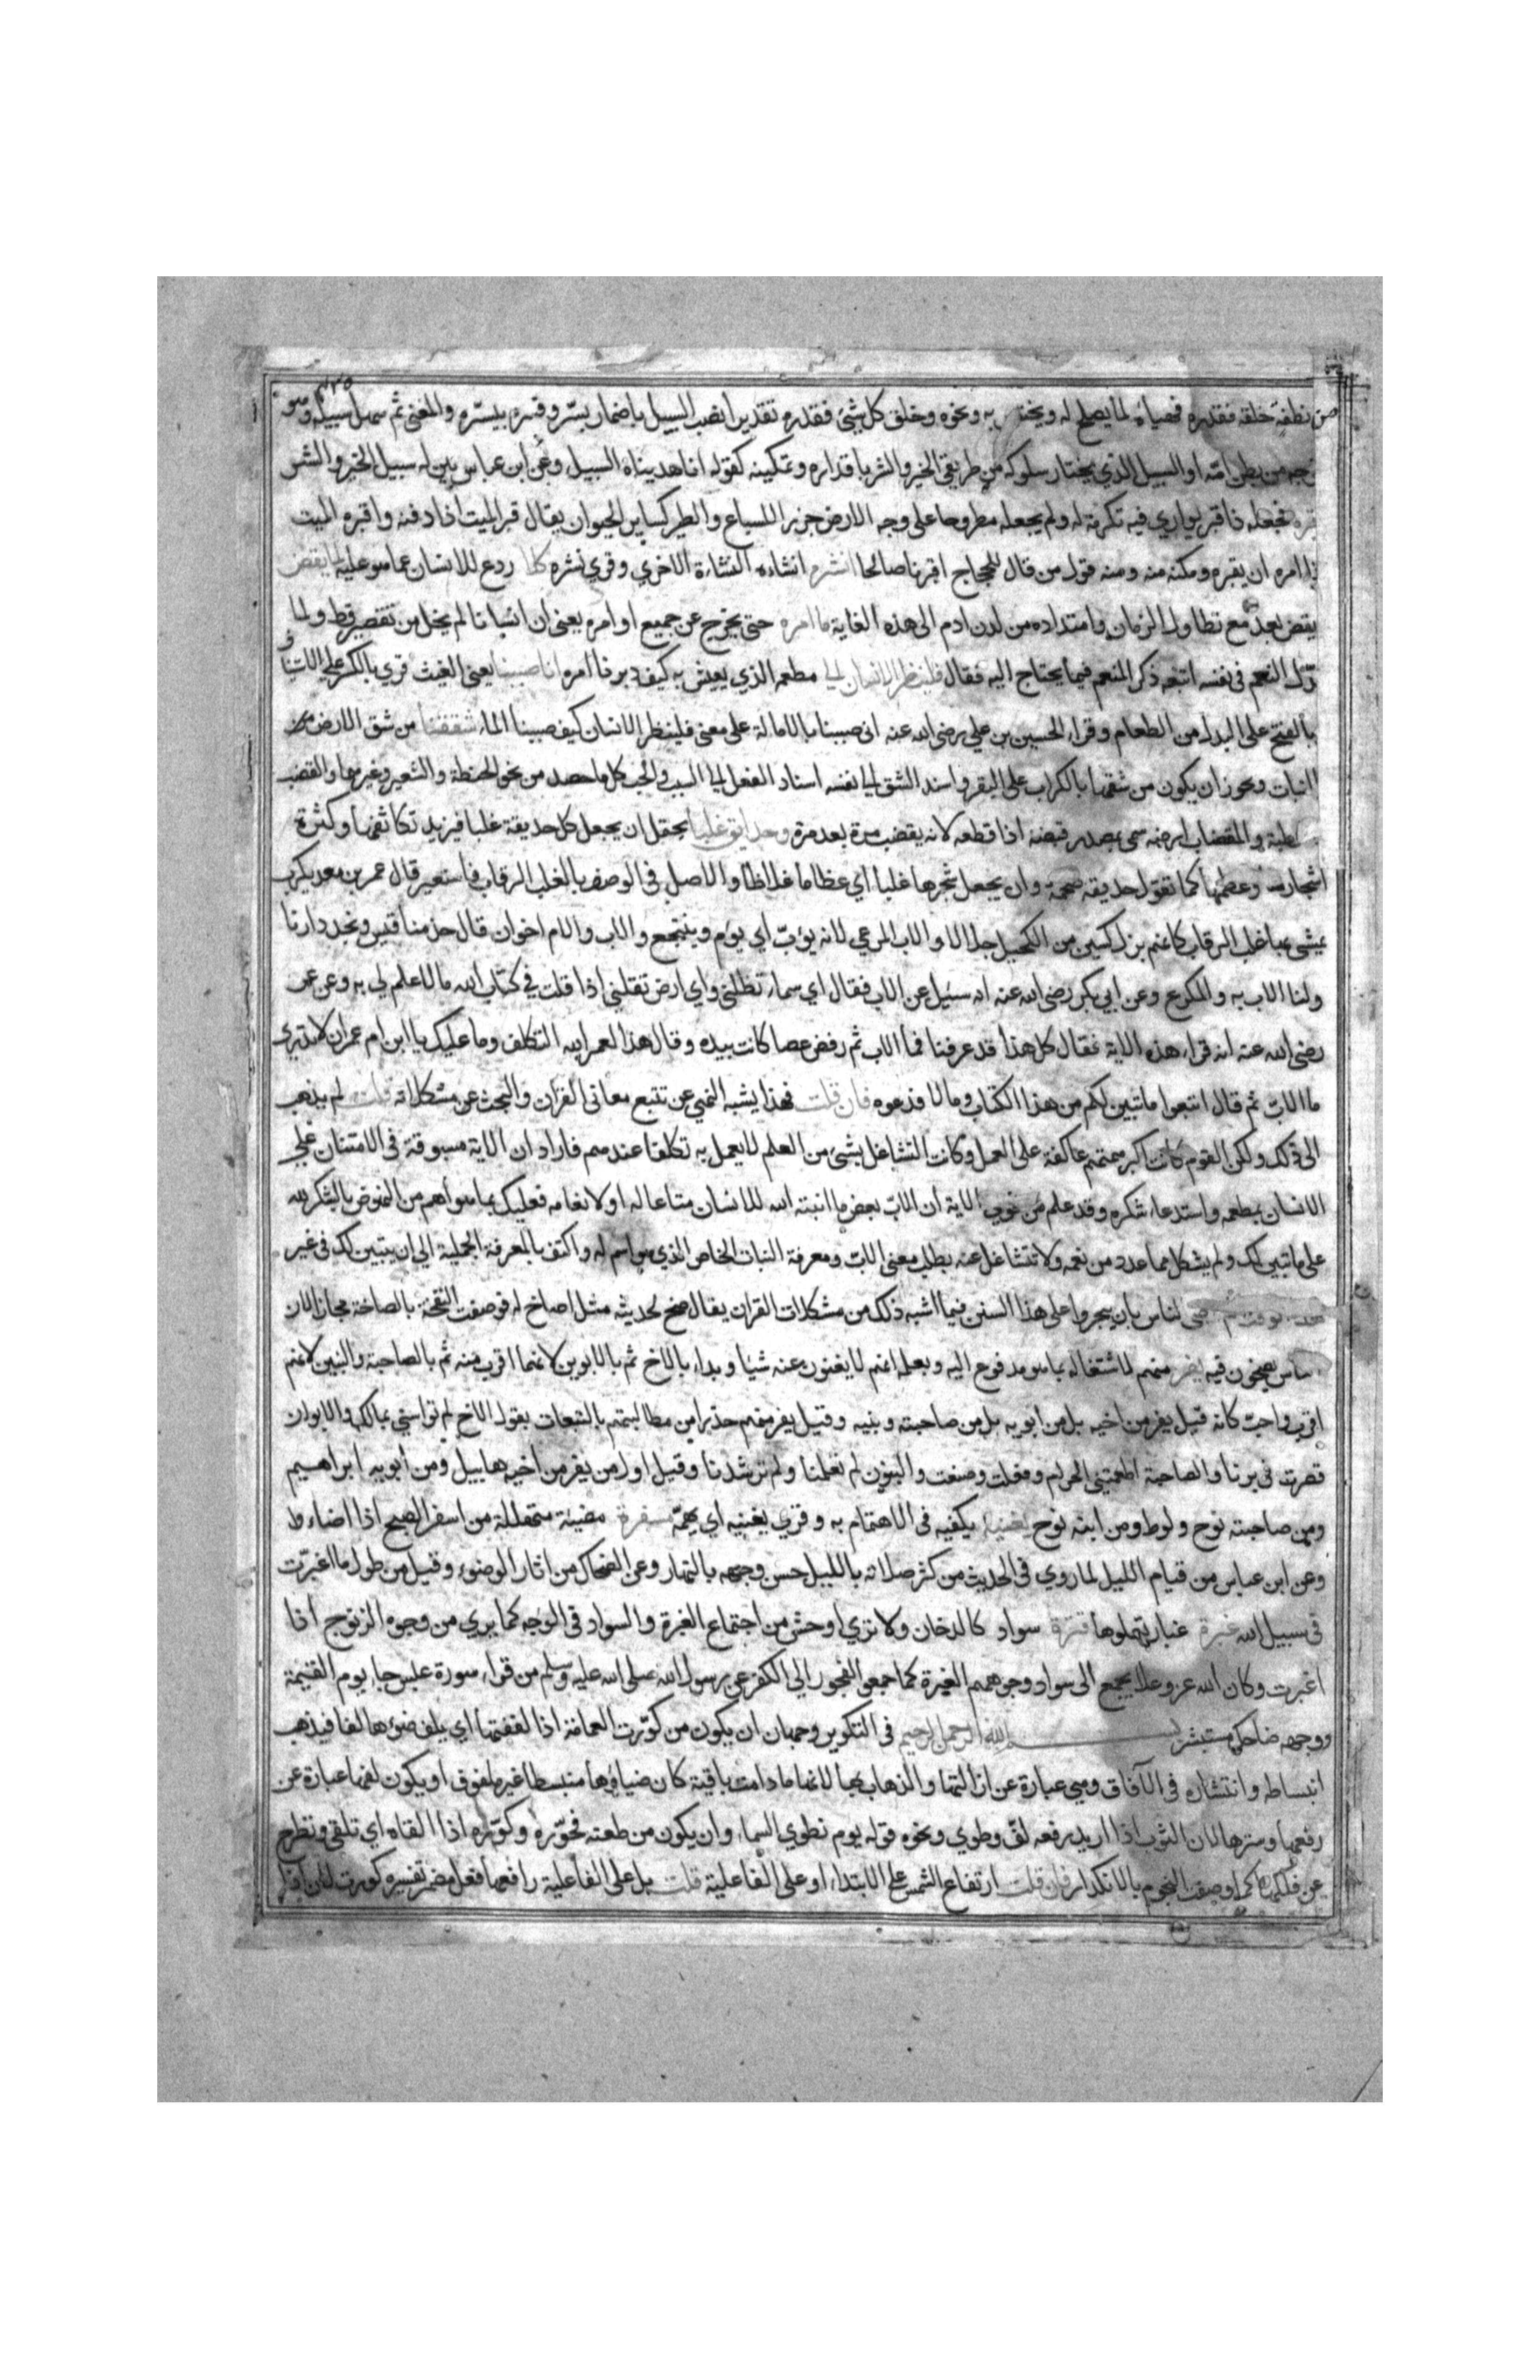 ٤٣٥
من نطفة خلقه فقدره فهياه لما يصلح له ويختص به ونحوه وخلق كل شيئ فقدره تقديرا نصب السبيل باضمار يسّر وفسره بيسّره والمعنى ثم سهل سبيله وهو
من بطن امّه او السبيل الذي يختار سلوكه من طريقي الخير والشر باقداره وتمكينه كقوله انا هديناه السبيل وعن ابن عباس بين له سبيل الخير والشر
فجعله ذا قبر يواري فيه تكرمة له ولم يجعله مطروحا على وجه الارض جزرا للسباع والطير كساير الحيوان يقال قبر الميت اذا دفنه واقبره الميت
اذا امره ان يقبره ومكنه منه ومنه قول من قال للحجاج اقبرنا صالحا انشره انشاءه النشاءة الاخري وقري نشره كلا ردع للانسان عما هو عليه لما يقض
يقض بعد مع تطاول الزمان وامتداده من لدن ادم الى هذه الغاية ما امره حتى يخرج عن جميع اوامره يعني ان انسانا لم يخل من تقصير قط ولما
النعم فى نفسه اتبعه ذكر النعم فيما يحتاج اليه فقال فلينظر الانسان الى مطعمه الذي يعيش به كيف دبرنا امره انا صببنا يعنى الغيث قري بالكسر على الاستيناف
بالفتح على البدل من الطعام وقراء الحسين بن علي رضى الله عنه انى صببنا بالامالة على معنى فلينظر الانسان كيف صببنا الماء شققنا من شق الارض
النبات ويجوز ان يكون من شقها بالكراب على البقر واسند الشق الى نفسه اسناد الفعل الى السبب والحب كل ما حصد من نحو الحنطة والشعير وغيرهما والقضب
الرطبة والمقضاب ارضه سمى بمصدر قضبه اذا قطعه لانه يقضب مرة بعد مرة وحدايق غلبا يحتمل ان يجعل كل حديقة غلبا فيريد تكاثفها وكثرة
اشجارها وعظمها كما تقول حديقة ضخمة وان يجعل شجرها غلبا اي عظاما غلاظا والاصل فى الوصف بالغلب الرقاب فاستعير قال عمر بن معديكرب
يمشى بها غلب الرقاب كانهم بزل كسين من الكحيل جلالا والاب المرعي لانه يؤبّ اي يؤم وينتجع والاب والام اخوان قال جذمنا قيس ونجد دارنا
ولنا الاب به والمكرع وعن ابي بكر رضى الله عنه انه سئيل عن الاب فقال اي سماء تظلنى واي ارض تقلنى اذا قلت في كتاب الله ما لا علم لي به وعن عمر
رضى الله عنه انه قراء هذه الاية فقال كل هذا قد عرفنا فما الاب ثم رفض عصا كانت بيده وقال هذا لعمر الله التكلف وما عليك يا ابن ام عمر ان لا تدري
ما الابّ ثم قال اتبعوا ما تبين لكم من هذا الكتاب وما لا فدعوه فان قلت فهذا يشبه النهي عن تتبع معانى القران والبحث عن مشكلاته قلت لم يذهب
الى ذلك ولكن القوم كانت اكبر همتهم عاكفة على العمل وكانت التشاغل بشئ من العلم لا يعمل به تكلفا عندهم فاراد ان الاية مسوقة فى الامتنان على
الانسان بمطعمه واستدعاء شكره وقد علم من فحوي الاية ان الابّ بعض ما انبته الله للانسان متاعا له او لانعامه فعليك بما هو اهم من النهوض بالشكر لله
على ما تبين لك ولم يشكل مما عدد من نعمه ولا تتشاغل عنه بطلب معنى الابّ ومعرفة النبات الخاص الذي هو اسم له واكتف بالمعرفة الجملية الي ان يتبين لك فى غير
للناس بان يجروا على هذا السنن فيما اشبه ذلك من مشكلات القران يقال صخ لحديثه مثل اصاخ له فوصفت النفخة بالصاخة مجازا لان
الناس يصخون فيه يفر منهم لاشتغاله بما هو مدفوع اليه وبعلمه انهم لا يغنون عنه شيا وبداء بالاخ ثم بالابوين لانهما اقرب منه ثم بالصاحبة والبنين لانهم
اقرب واحبّ كانه قيل يفر من اخيه بل من ابويه بل من صاحبته وبنيه وقيل يفر منهم حذرا من مطالبتهم بالتبعات يقول الاخ لم تواسني بمالك والابوان
قصرت فى برنا والصاحبة اطعمتنى الحرام وفعلت وصنعت والبنون لم تعلمنا ولم ترشدنا وقيل اول من يفر من اخيه هابيل ومن ابويه ابراهيم
ومن صاحبته نوح ولوط ومن ابنه نوح يغنيه يكفيه فى الاهتمام به وقري يعنيه اي يهمّه مسفرة مضيئة متهللة من اسفر الصبح اذا اضاء ط
وعن ابن عباس من قيام الليل لما روي فى الحديث من كثر صلاته بالليل حسن وجهه بالنهار وعن الضحاك من اثار الوضوء وقيل من طول ما اغبرّت
فى سبيل الله غبرة غبار يعلوها قترة سواد كالدخان ولا تري اوحش من اجتماع الغبرة والسواد فى الوجه كما يري من وجوه الزنوج اذا
اغبرت وكان الله عز وعلا يجمع الى سواد وجوههم الغبرة كما جمعوا الفجور الي الكفر عن رسول الله صلى الله عليه وسلم من قراء سورة عبس جاء يوم القيمة
ووجهه ضاحك مستبشر بسم الله الرحمن الرحيم فى التكوير وجهان ان يكون من كوّرت العمامة اذا لففتها اي يلف ضوءها لفا فيذهب
انبساطه وانتشاره فى الآفاق وهي عبارة عن ازالتها والذهاب بها لانها ما دامت باقية كان ضياؤها منبسطا غير ملفوف او يكون لفها عبارة عن
رفعها وسترها لان الثوب اذا اريد رفعه لفّ وطوي ونحوه قوله يوم نطوي السماء وان يكون من طعنه فجوّره وكوّره اذا القاه اي تلقى وتطرح
عن فلكها كما وصفت النجوم بالانكدار فان قلت ارتفاع الشمس على الابتداء او على الفاعلية قلت بل على الفاعلية رافعها فعل مضمر تفسيره كورت لان اذا